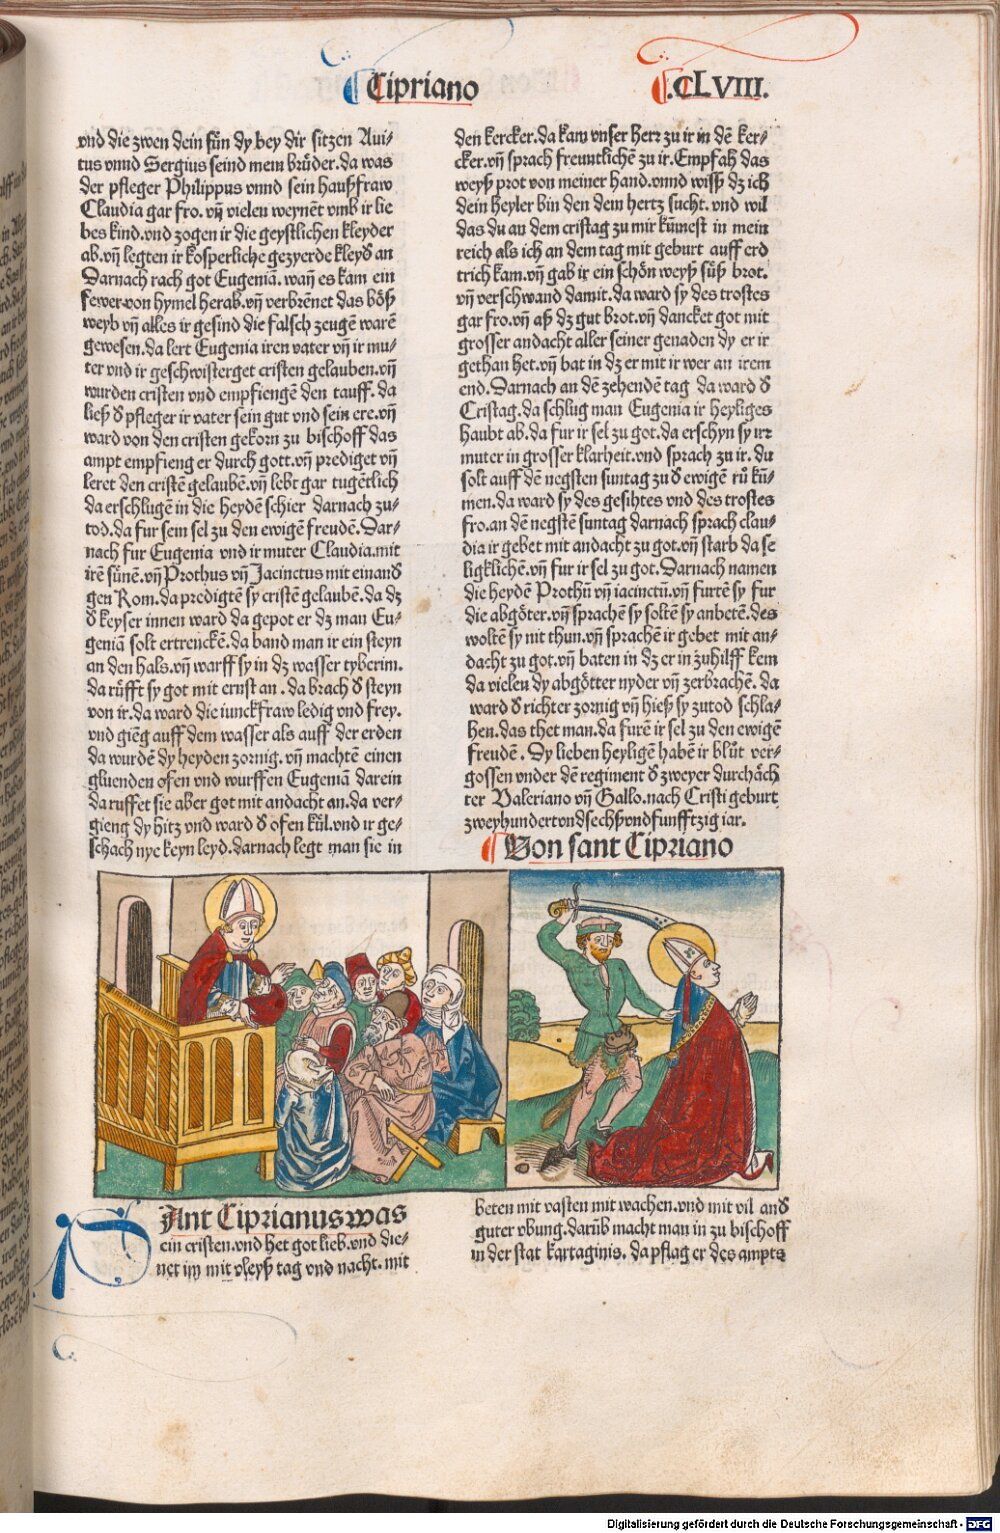 Cipriano
.CLVIII.
vnd die zwen dein sün dy bey dir sitzen Aui⸗
tus vnnd Sergius seind mein brüder.da was
der pfleger Philippus vnnd sein haußfraw
Claudia gar fro.vñ vielen weynẽt vmb ir lie
bes kind.vnd zogen ir die geystlichen kleyder
ab.vñ legten ir kosperliche gezyerde kleyd an
Darnach rach got Eugeniã.wañ es kam ein
fewer.von hymel herab.vñ verbrẽnet das böß
weyb vñ alles ir gesind die falsch zeugẽ warẽ
gewesen.da lert Eugenia iren vater vñ ir mu⸗
ter vnd ir geschwisterget cristen gelauben.vñ
wurden cristen vnd empfiengẽ den tauff.da
ließ d̕ pfleger ir vater sein gut vnd sein ere.vñ
ward von den cristen gekorn zu bischoff das
ampt empfieng er durch gott.vñ prediget vñ
leret den cristẽ gelaubẽ.vñ lebt gar tugẽtlich
da erschlugẽ in die heydẽ schier darnach zu⸗
tod.da fur sein sel zu den ewigẽ freudẽ.Dar⸗
nach fur Eugenia vnd ir muter Claudia.mit
irẽ sünẽ.vñ Prothus vñ Jacinctus mit einand̕
gen Rom.da predigtẽ sy cristẽ gelaubẽ.da dz
d̕ keyser innen ward da gepot er dz man Eu⸗
geniã solt ertrenckẽ.da band man ir ein steyn
an den hals.vñ warff sy in dz wasser tyberim.
da rüfft sy got mit ernst an.da brach d̕ steyn
von ir.da ward die iunckfraw ledig vnd frey.
vnd giẽg auff dem wasser als auff der erden
da wurdẽ dy heyden zornig.vñ machtẽ einen
gluenden ofen vnd wurffen Eugeniã darein
da ruffet sie aber got mit andacht an.da ver⸗
gieng dy hitz vnd ward d̕ ofen kül.vnd ir ge⸗
schach nye keyn leyd.darnach legt man sie in
den kercker.da kam vnser herr zu ir in dẽ ker⸗
cker.vñ sprach freuntlichẽ zu ir.Empfah das
weyß prot von meiner hand.vnnd wiss dz ich
dein heyler bin den dein hertz sucht.vnd wil
das du an dem cristag zu mir kümest in mein
reich als ich an dem tag mit geburt auff erd
trich kam.vñ gab ir ein schön weyß süß brot.
vñ verschwand damit.da ward sy des trostes
gar fro.vñ aß dz gut brot.vñ dancket got mit
grosser andacht aller seiner genaden dy er ir
gethan het.vñ bat in dz er mit ir wer an irem
end.Darnach an dẽ zehendẽ tag da ward d̕
Cristag.da schlug man Eugenia ir heyliges
haubt ab.da fur ir sel zu got.da erschyn sy irr
muter in grosser klarheit.vnd sprach zu ir.du
solt auff dẽ negsten suntag zu d̕ ewigẽ rů kũ⸗
men.da ward sy des gesihtes vnd des trostes
fro.an dẽ negstẽ suntag darnach sprach clau⸗
dia ir gebet mit andacht zu got.vñ starb da se
ligklichẽ.vñ fur ir sel zu got.Darnach namen
die heydẽ Prothũ vñ iacinctũ.vñ furrẽ sy fur
die abgöter.vñ sprachẽ sy soltẽ sy anbetẽ.des
woltẽ sy nit thun.vñ sprachẽ ir gebet mit an⸗
dacht zu got.vñ baten in dz er in zuhilff kem
da vielen dy abgötter nyder vñ zerbrachẽ.da
ward d̕ richter zornig vñ hieß sy zutod schla⸗
hen.das thet man.da furẽ ir sel zu den ewigẽ
freudẽ.Dy lieben heyligẽ habẽ ir blůt ver⸗
gossen vnder dẽ regiment d̕ zweyer durchäch
ter Valeriano vñ Gallo.nach Cristi geburt
zweyhundertvndsechßvndfunfftzig iar.
Von sant Cipriano
SAnt Ciprianus was
ein cristen.vnd het got lieb.vnd die⸗
net im mit vleyß tag vnd nacht.mit
beten mit vasten mit wachen.vnd mit vil and̕
guter vbung.darũb macht man in zu bischoff
in der stat kartaginis.da pflag er des ampts
Digitalisierung gefördert durch die Deutsche Forschungsgemeinschaft - DFG